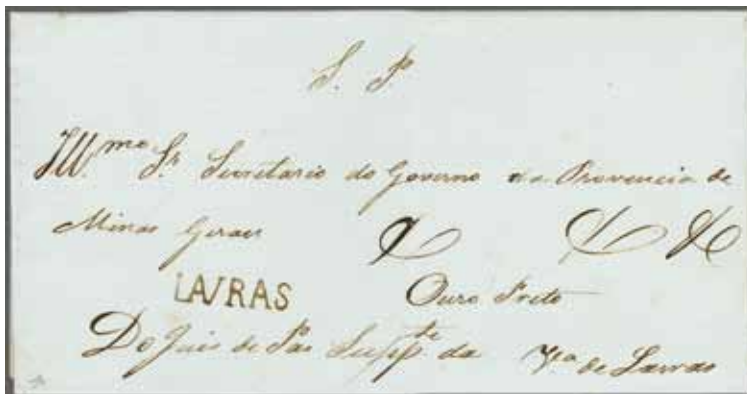 S. P.
Illmo Sr Secretario do Governo da Provencia de
Minas Geraes
LAVRAS Ouro Preto
Do Juis de Pas Suppte da Va de Lavras